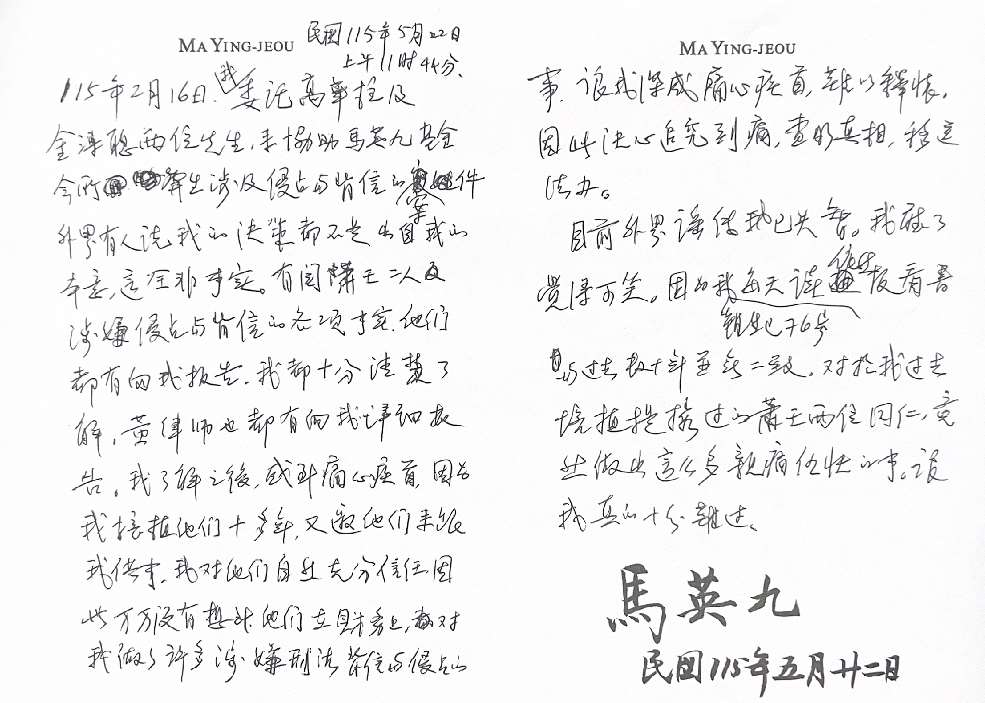 MA YING-JEOU
民國115年5月22日
上午11時44分.
115年2月16日.我委託高華柱及
金溥聰兩位先生,來協助馬英九基金
會所 發生涉及侵占与背信的案件
外界有人說,我的決策都不是出自我的
本意,這全非事实。有関蕭王二人及
涉嫌侵占与背信的各項事实,他們
都有向我報告,我都十分清楚了
解,黃律師也都有向我詳細報
告。我了解之後,感到痛心疾首,因為
我培植他們十多年,又邀他們来跟
我供事,我对他們自然充分信任因
此万万沒有想到他們 对
我做了許多涉嫌刑法背信与侵占的
MA YING-JEOU
事,讓我深感痛心疾首,難以釋懷。
因此決心追究到底,查明真相,移送
法办。
目前外界謠傳我已失智。我聽了
覺得可笑。因為我每天讀 看書
与過去数十年並無二致。对於我过去
培植提拔过的蕭王两位同仁,竟
然做出這么多親痛仇快的事。讓
我真的十分難过。
馬英九
民國115年五月廿二日